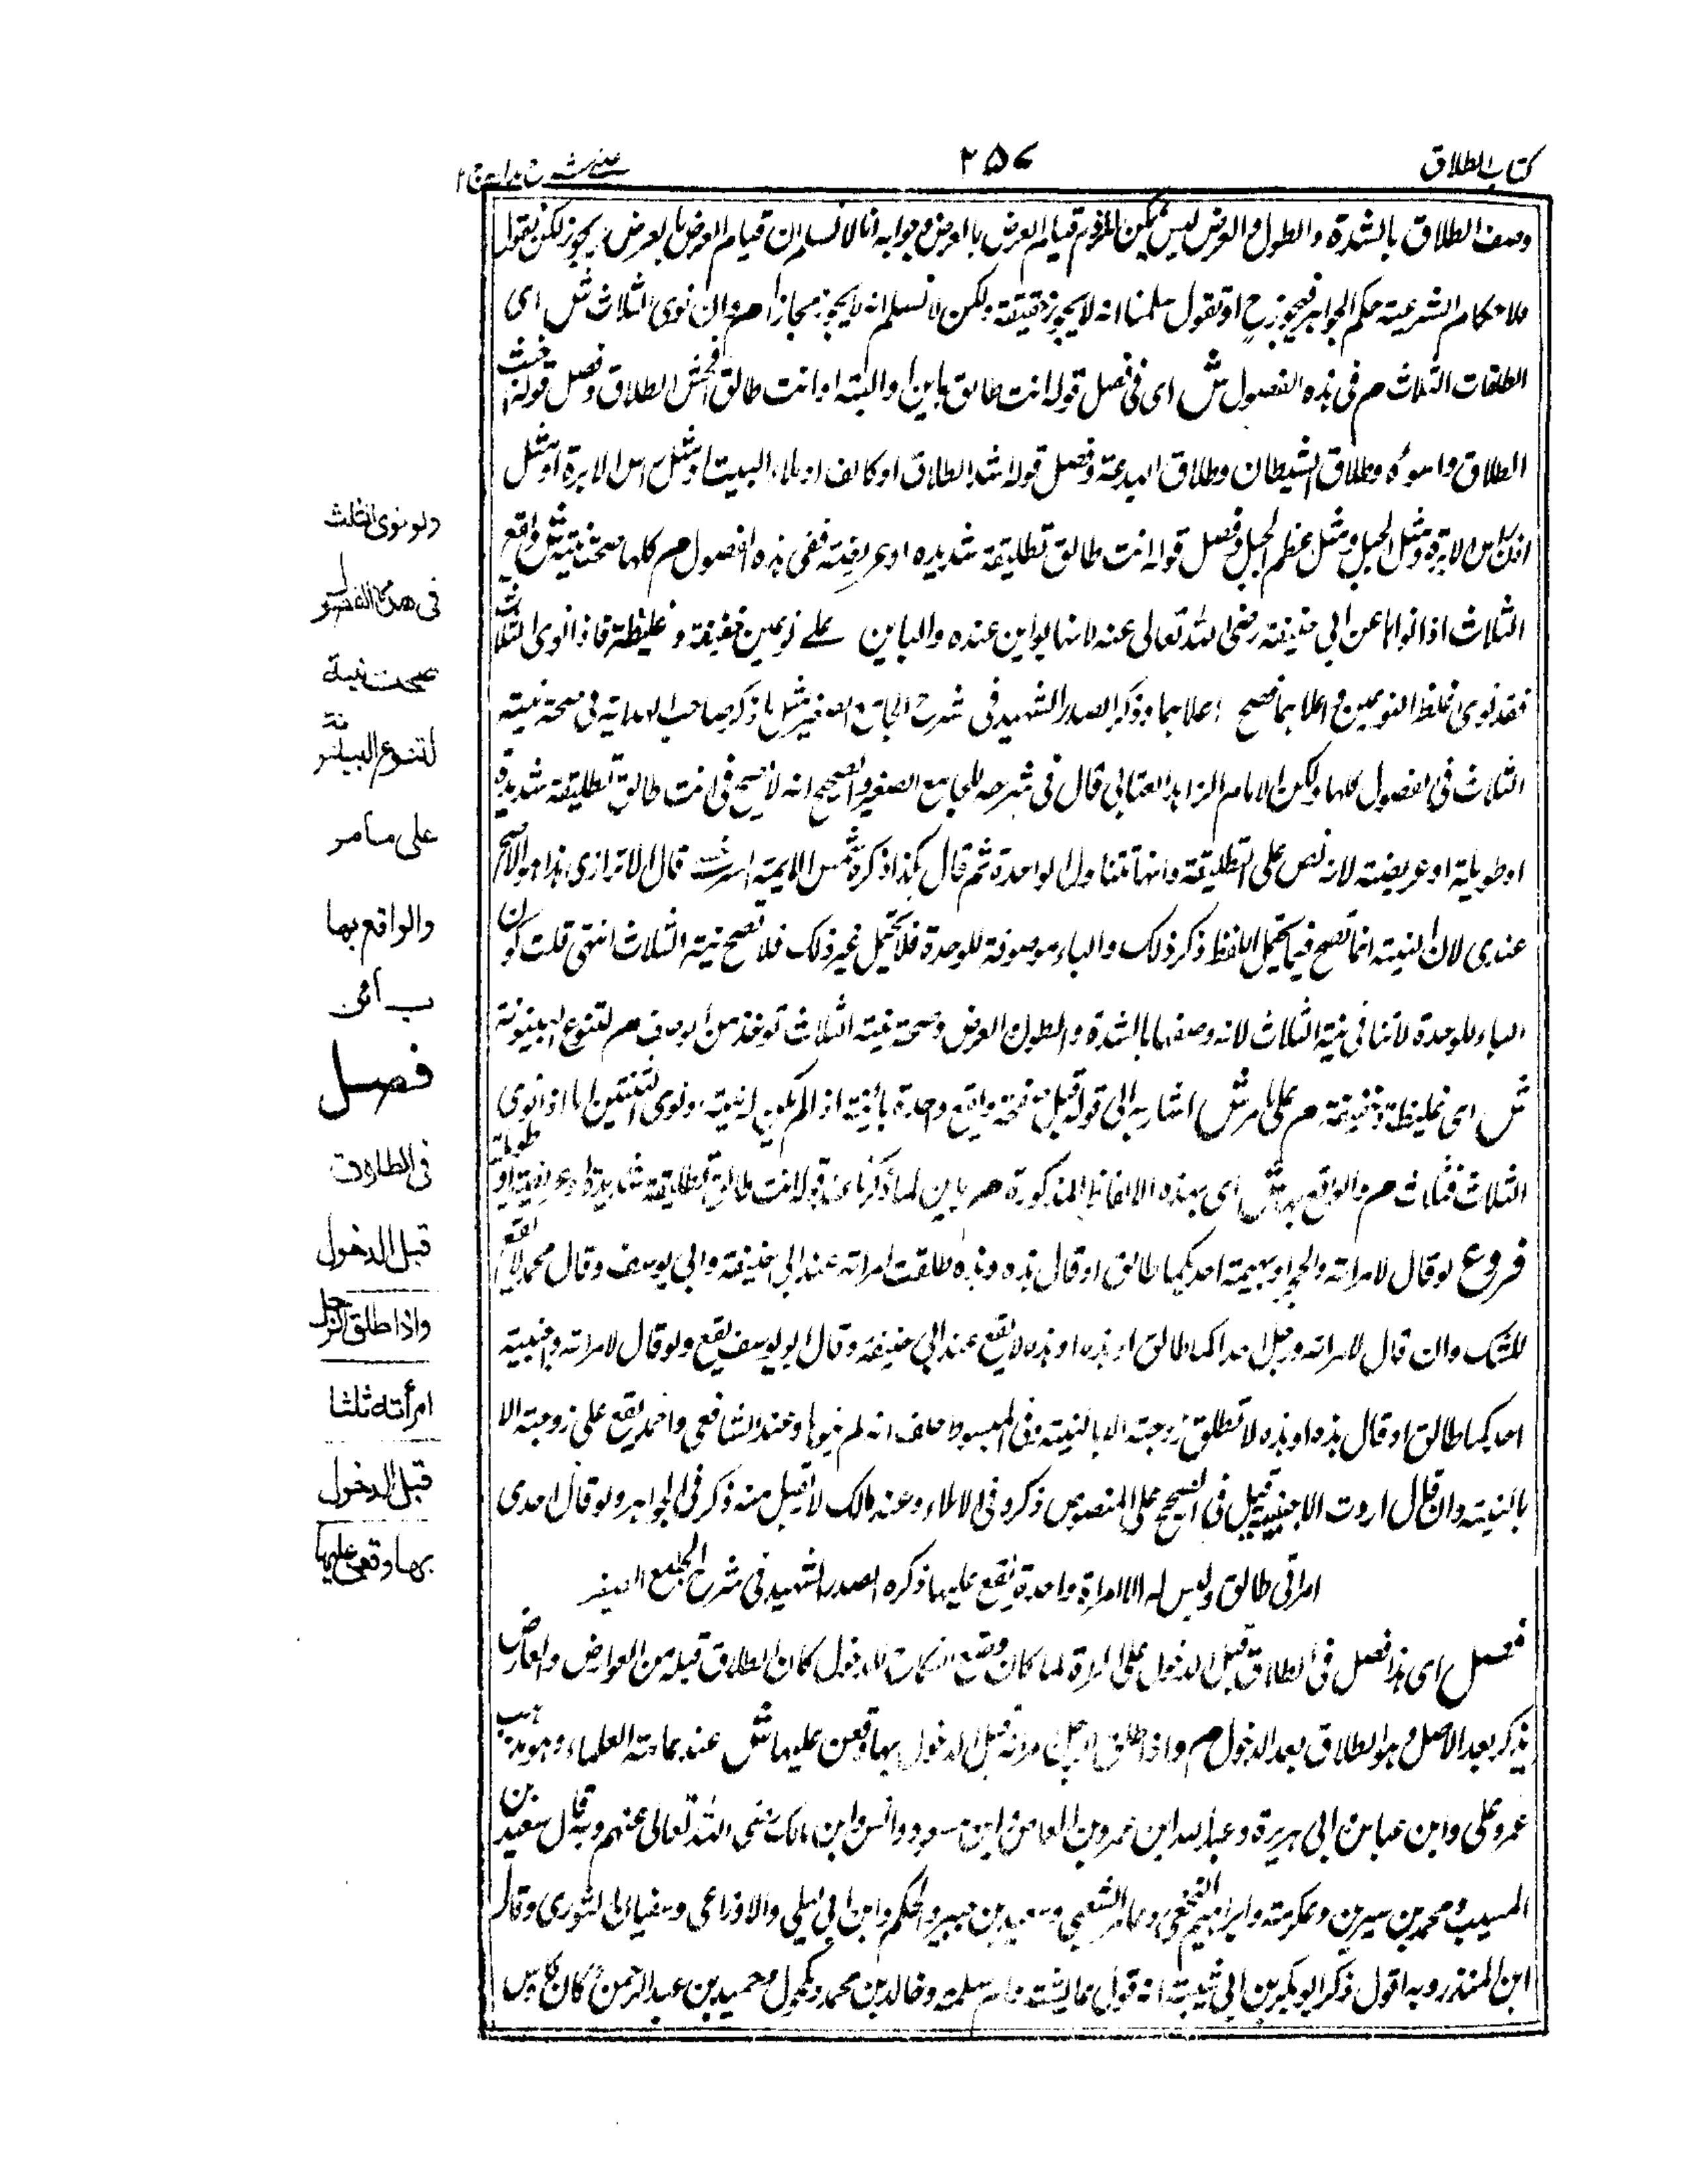 كتاب الطلاق
٢٥٧
وصف الطلاق بالشدة والطول والعرض ليس يمكن قيام العرض بالعرض وجوابه انا لا نسلم ان قيام العرض بالعرض يجوز لكن نقول
للاحكام الشرعية حكم الجواهر فيجوز ح او تقول سلمنا انه لا يجوز حقيقة ولكن لا نسلم انه لا يجوز مجازا م وان نوى الثلاث ش اى
الطلقات الثلاث م فى هذه الفصول ش اى فى فصل قوله انت طالق باين او البتة او انت طالق افحش الطلاق وفصل قوله اخبث
الطلاق واسوءه وطلاق الشيطان وطلاق البدعة وفصل قوله اشد الطلاق او كالف او ملاء البيت او مثل راس الابرة او مثل
راس الابرة ومثل الجبل ومثل عظم الجبل وفصل قوله انت طالق تطليقة شديدة او عريضة ففى هذه الفصول م كلها صحت نيته ش واقع
الثلاث اذا نواها عن ابي حنيفة رضى الله تعالى عنه لانها بواين عنده والباين على نوعين خفيفة وغليظة فاذا نوى الثلاث
فقد نوى اغلظ النوعين واعلاهما فصح اعلاهما وذكر الصدر الشهيد فى شرح الجامع الصغير مثل ما ذكر صاحب الهداية فى صحة نيته
الثلاث فى الفصول كلها ولكن الامام الزاهد العتابي قال فى شرحه للجامع الصغير والصحيح انه لا تصح فى انت طالق تطليقة شديدة
او طويلة او عريضة لانه نص على التطليقة وانها تتناول الواحدة ثم قال هكذا ذكره شمس الايمة السرخسى قال الاترازى هذا هو الاصح
عندى لان النية انما تصح فيما يحتمل اللفظ ذكر ذلك والباء موصوفة للوحدة فلا يحتمل غير ذلك فلا تصح نية الثلاث انتهى قلت كون
الباء للوحدة لا تنافى نية الثلاث لانه وصفها بالشدة والطول والعرض وصحة نية الثلاث توخذ من الوصف م لتنوع البينونة
ش اى غليظة وخفيفة م على ما مر ش اشار به الى قوله قبل صفحة واقع واحدة بائنة اذا لم يكن له نية ونوى الثنتين اما اذا نوى
الثلاث فثلاث م والواقع بها ش اى بهذه الالفاظ المذكورة م باين لما ذكرنا عند قوله انت طالق تطليقة شديدة او عريضة او طويلة
فروع لو قال لامراته والحجر او بهيمة احديكما طالق او قال هذه وهذه طلقت امراته عند ابي حنيفة وابي يوسف وقال محمد لا يقع
للشك وان قال لامراته ورجل احداكما طالق او هذه او هذه لا يقع عند ابي حنيفة وقال ابو يوسف يقع ولو قال لامراته واجنبية
احديكما طالق او قال هذه او هذه لا تطلق زوجته الا بالنية وفى المبسوط حلف انه لم ينوها وعند الشافعى واحمد يقع على زوجته الا
بالنية وان قال اردت الاجنبية قبل فى الصحيح على المنصوص ذكره فى الاملاء وعند مالك لا تقبل منه ذكر فى الجواهر ولو قال احدى
امراتى طالق وليس له الا امراة واحدة يقع عليها ذكره الصدر الشهيد فى شرح الجامع الصغير
فصل اى هذا فصل فى الطلاق قبل الدخول على المراة لما كان وضع النكاح للدخول كان الطلاق قبله من العوارض والعارض
يذكر بعد الاصل وهو الطلاق بعد الدخول م واذا طلق الرجل امراته قبل الدخول بها وقعن عليها ش عند عامة العلماء وهو مذهب
عمر وعلى وابن عباس وابى هريرة وعبد الله ابن عمرو بن العاص وابن مسعود وانس وابن مالك رضى الله تعالى عنهم وبه قال سعيد بن
المسيب ومحمد بن سيرين وعكرمة وابراهيم النخعى وعامر الشعبى وسعيد بن جبير والحكم وابن ابى ليلى والاوزاعى وسفيان الثورى وقال
ابن المنذر وبه اقول ذكر ابو بكر بن ابى شيبة انه قول عايشة وام سلمة وخالد بن محمد ومكحول وحميد بن عبد الرحمن كان طاوس
ولو نوى الثلث
فى هذه الفصول
صحت نيته
لتنوع البينونة
على ما مر
والواقع بها
بائن
فصل
فى الطلاق
قبل الدخول
واذا طلق الرجل
امرأته ثلثا
قبل الدخول
بها وقعن عليها